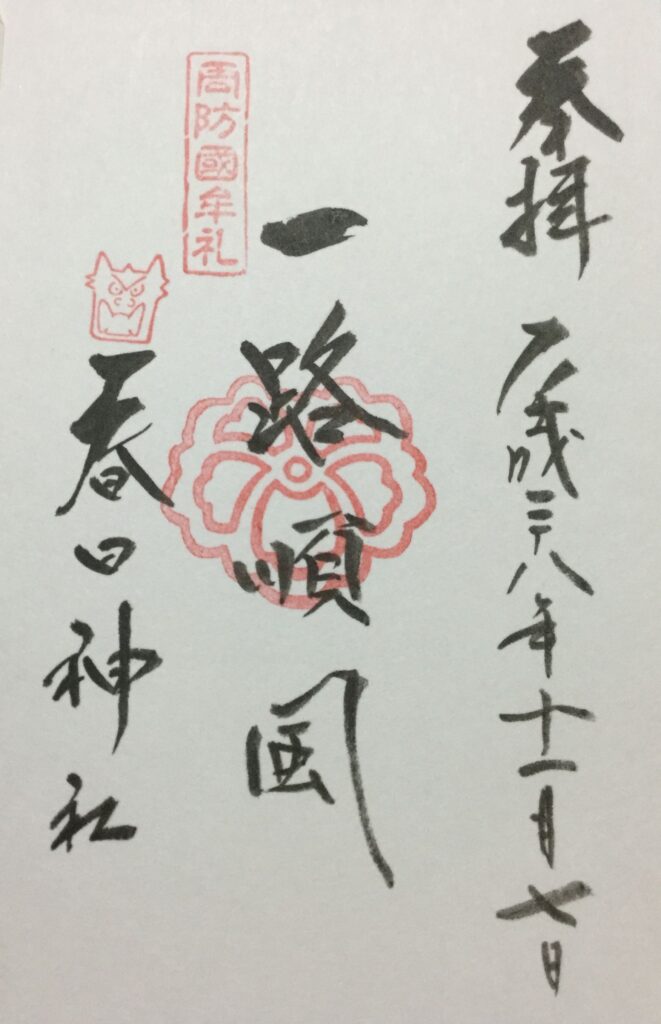 奉拝 平成二十八年十一月七日
一路順風
周防國牟礼
春日神社